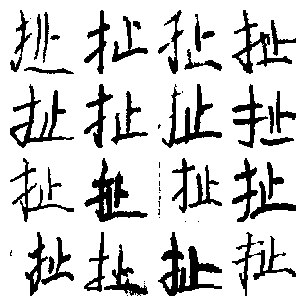 扯扯扯扯
扯扯扯扯
扯扯扯扯
扯扯扯扯